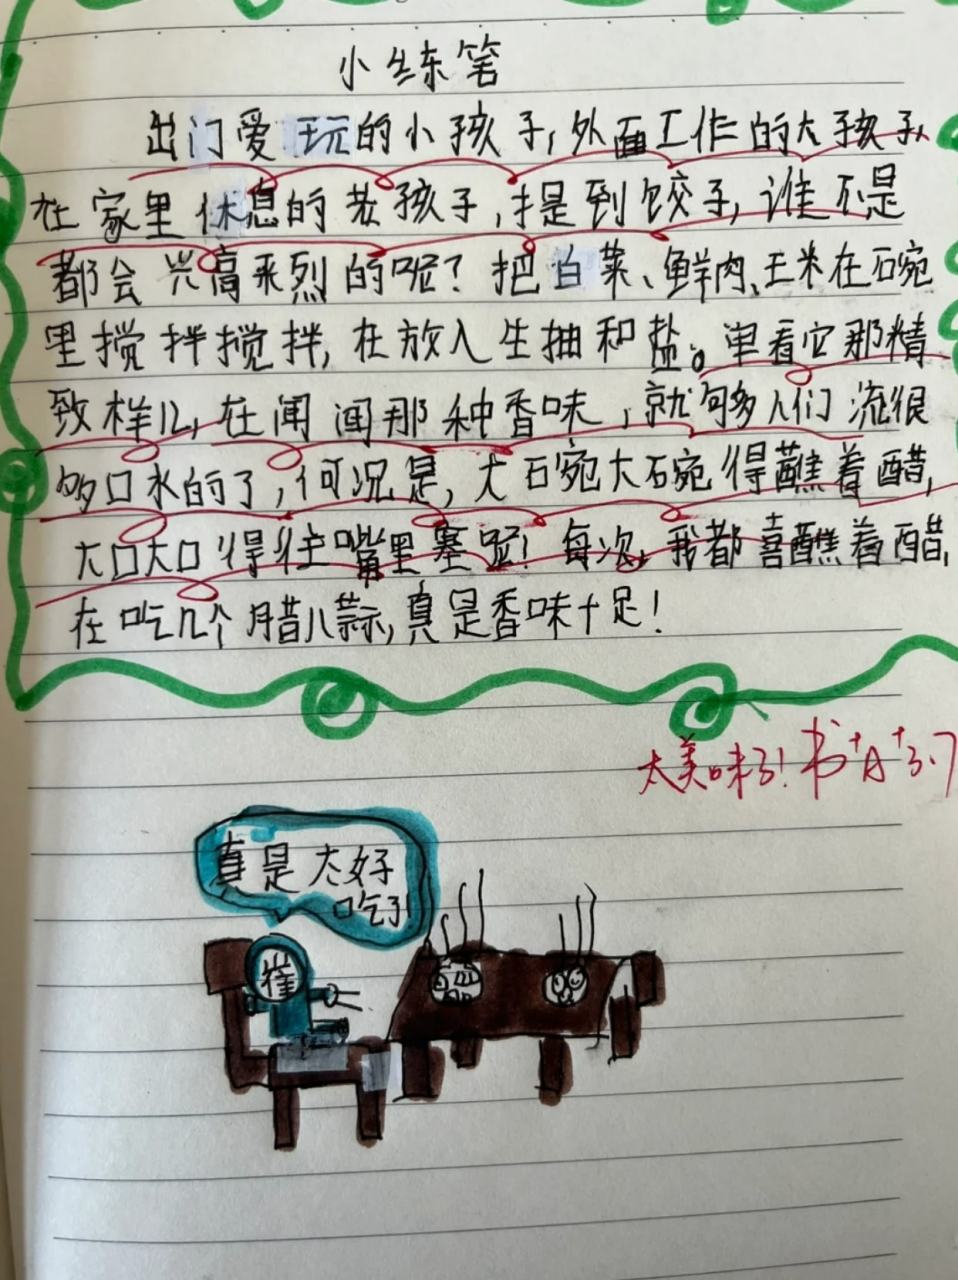 小练笔
出门爱玩的小孩子,外面工作的大孩子,
在家里休息的老孩子,提到饺子,谁不是
都会兴高采烈的呢?把白菜、鲜肉、玉米在石碗
里搅拌搅拌,在放入生抽和盐。单看它那精
致样儿,在闻闻那种香味,就够人们流很
多口水的了,何况是,大石碗大石碗得蘸着醋,
大口大口得往嘴里塞呢!每次,我都喜蘸着醋,
在吃几个腊八蒜,真是香味十足!
太美味了!书+A+3.7
真是太好
吃了
崔